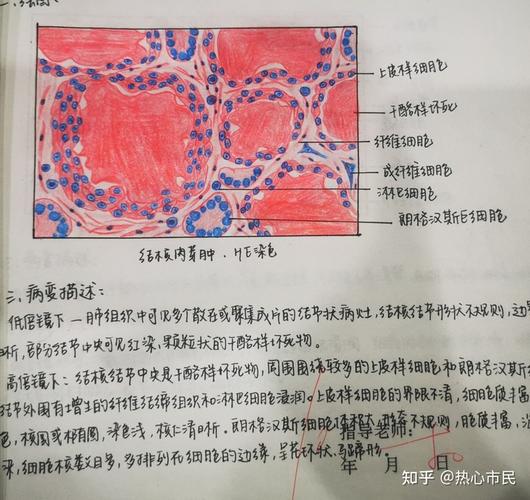 上皮样细胞
干酪样坏死
纤维细胞
成纤维细胞
淋巴细胞
朗格汉斯巨细胞
结核肉芽肿、HE染色
三、病变描述:
低倍镜下:肺组织中可见多个散在或聚集成片的结节状病灶,结核结节形状不规则,边
晰,部分结节中央可见红染、颗粒状的干酪样坏死物。
高倍镜下:结核结节中央是干酪样坏死物,周围围绕较多的上皮样细胞和朗格汉斯
结节外围有增生的纤维结缔组织和淋巴细胞浸润。上皮样细胞的界限不清,细胞质丰富,
色,核圆或椭圆,染色浅,核仁清晰。朗格汉斯细胞体积大,形态不规则,胞质丰富,
指导老师:
染,细胞核数目多,多排列在细胞的边缘,呈花环状、马蹄形。
年 月 日
知乎 @热心市民